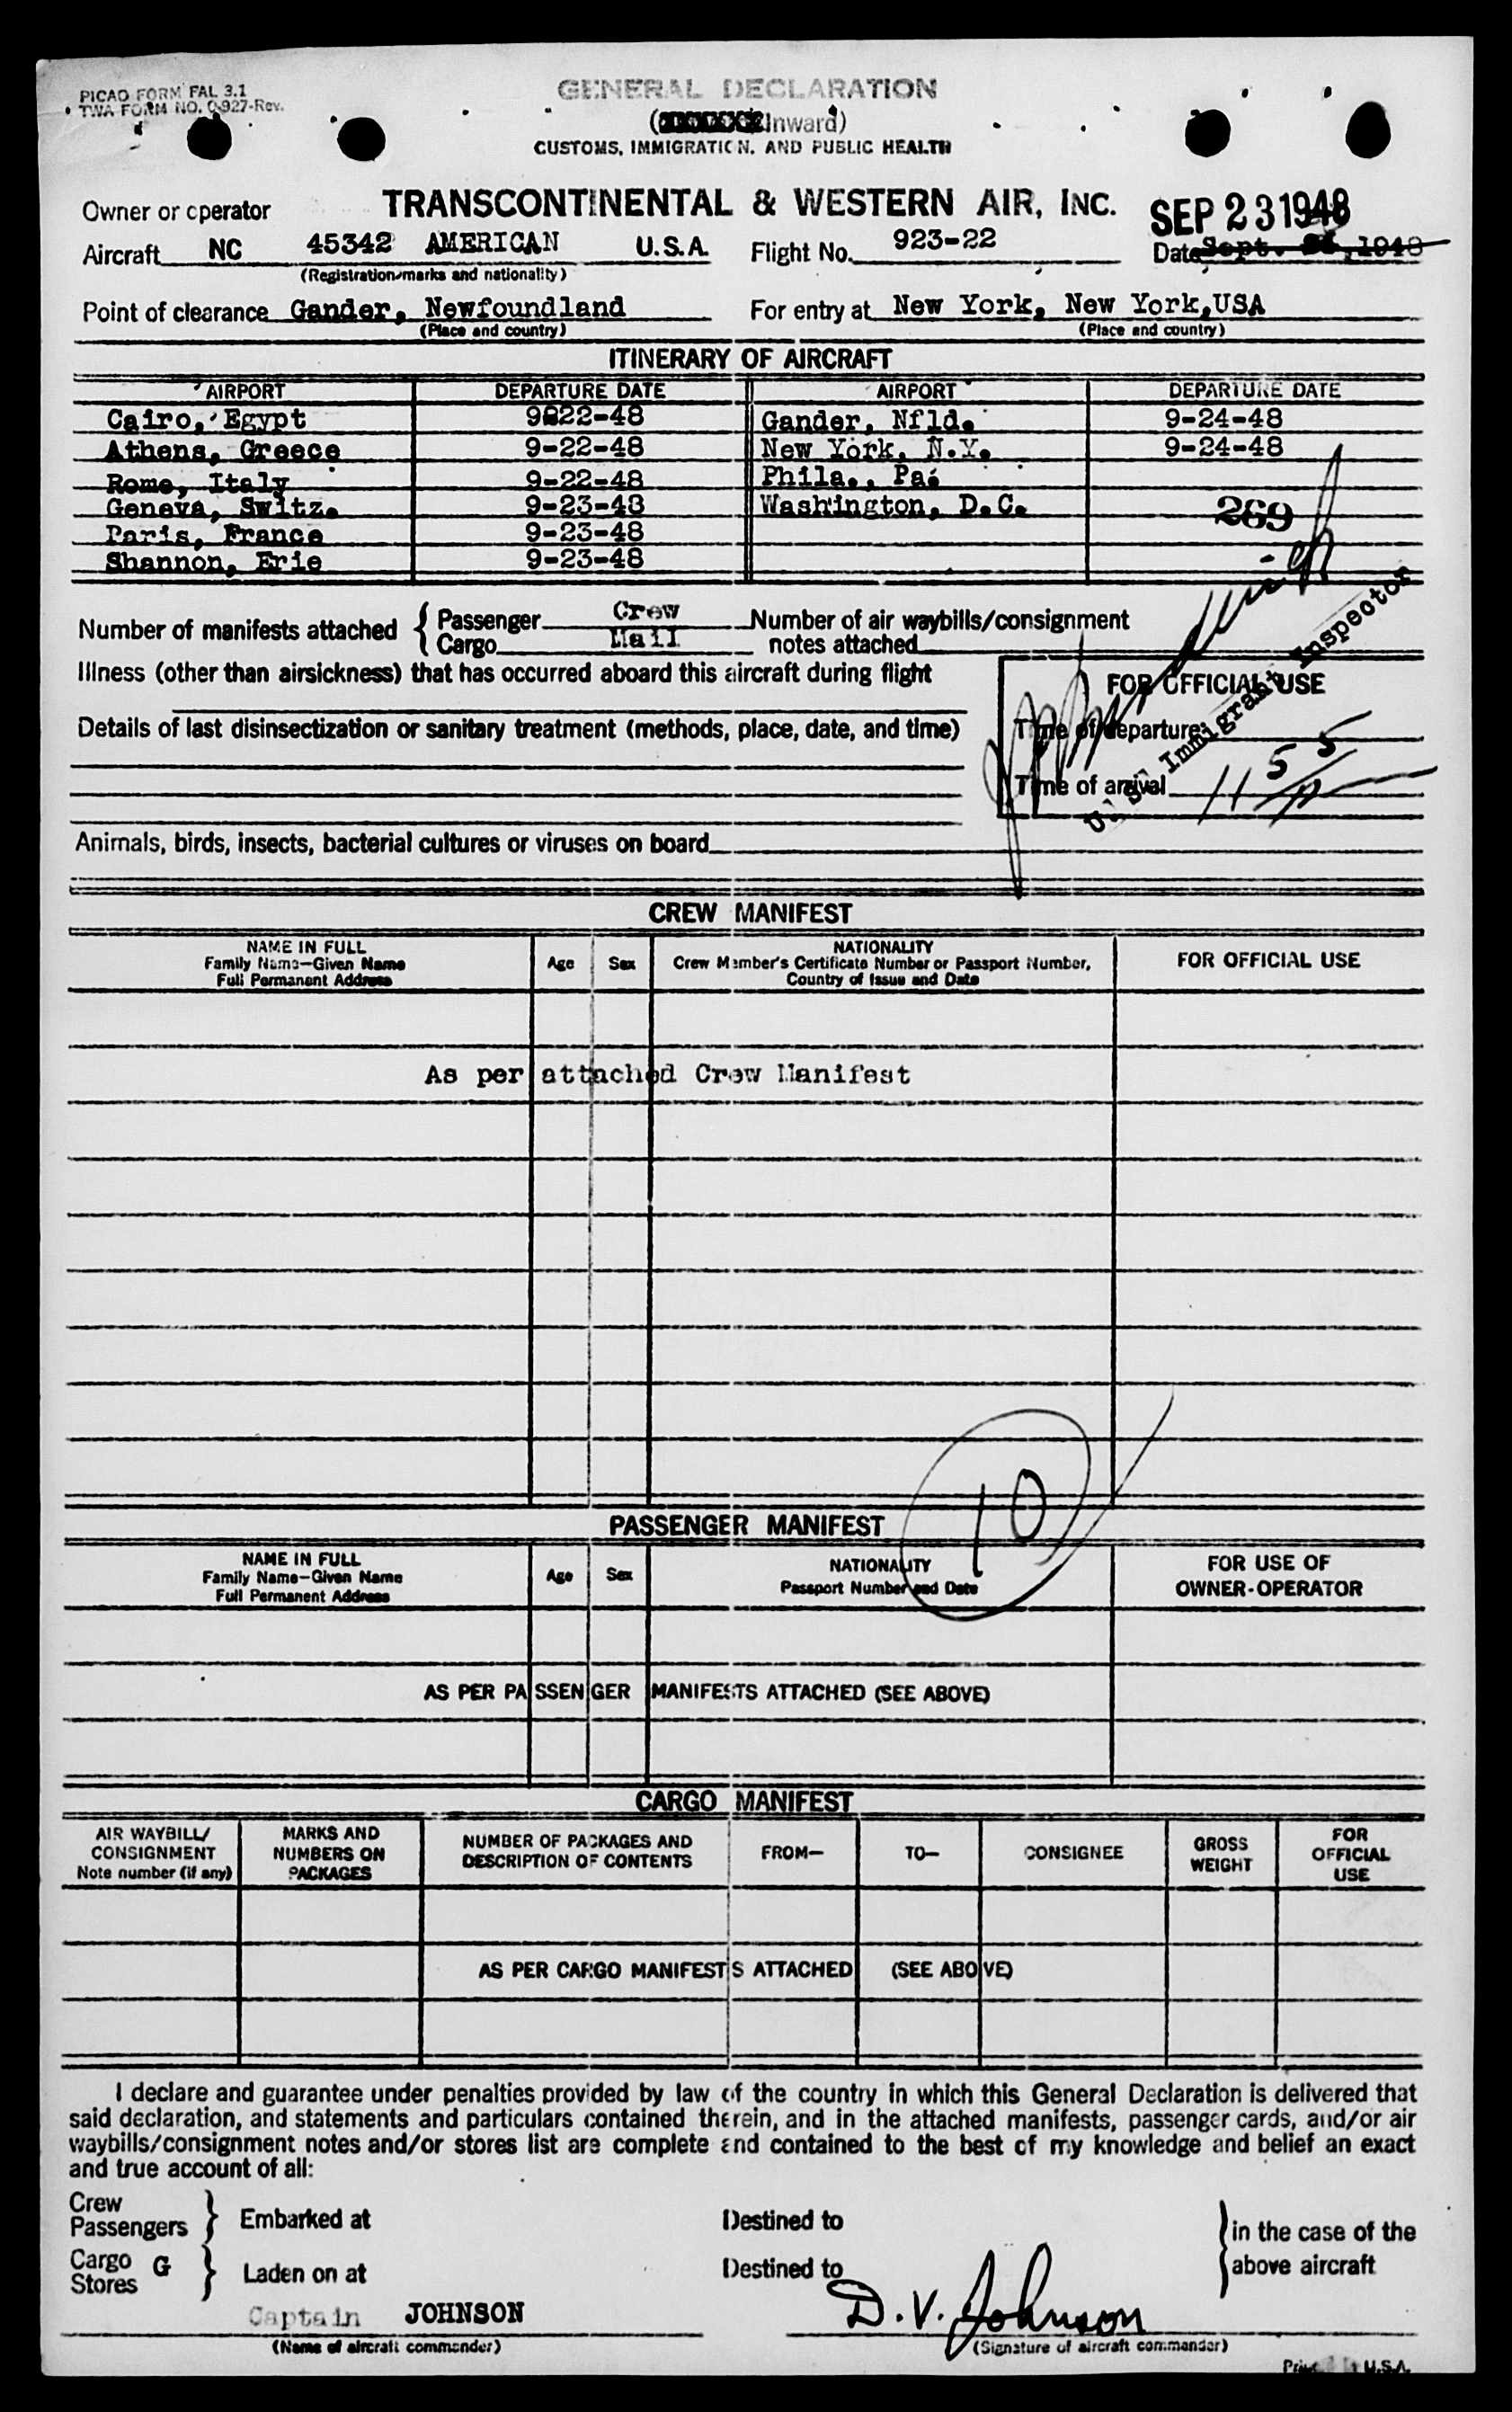 PICAO FORM FAL 3.1
TWA FORM NO. O-927-Rev.
GENERAL DECLARATION
(Inward)
CUSTOMS, IMMIGRATION, AND PUBLIC HEALTH
Owner or operator TRANSCONTINENTAL & WESTERN AIR, INC. SEP 23 1948
Aircraft NC 45342 AMERICAN U.S.A. Flight No. 923-22 Date Sept. 1948
(Registration marks and nationality)
Point of clearance Gander, Newfoundland For entry at New York, New York, USA
(Place and country) (Place and country)
ITINERARY OF AIRCRAFT
AIRPORT DEPARTURE DATE AIRPORT DEPARTURE DATE
Cairo, Egypt 9822-48 Gander, Nfld. 9-24-48
Athens, Greece 9-22-48 New York, N.Y. 9-24-48
Rome, Italy 9-22-48 Phila., Pa.
Geneva, Switz. 9-23-48 Washington, D.C. 269
Paris, France 9-23-48
Shannon, Erie 9-23-48
Number of manifests attached { Passenger Crew Number of air waybills/consignment
Cargo Mail notes attached
Illness (other than airsickness) that has occurred aboard this aircraft during flight
FOR OFFICIAL USE
Details of last disinsectization or sanitary treatment (methods, place, date, and time)
Time of departure
Time of arrival 11 55
U.S. Immigrant Inspector
Animals, birds, insects, bacterial cultures or viruses on board
CREW MANIFEST
NAME IN FULL
Family Name—Given Name
Full Permanent Address
Age Sex
NATIONALITY
Crew Member's Certificate Number or Passport Number,
Country of Issue and Date
FOR OFFICIAL USE
As per attached Crew Manifest
10
PASSENGER MANIFEST
NAME IN FULL
Family Name—Given Name
Full Permanent Address
Age Sex
NATIONALITY
Passport Number and Date
FOR USE OF
OWNER-OPERATOR
AS PER PASSENGER MANIFESTS ATTACHED (SEE ABOVE)
CARGO MANIFEST
AIR WAYBILL/
CONSIGNMENT
Note number (if any)
MARKS AND
NUMBERS ON
PACKAGES
NUMBER OF PACKAGES AND
DESCRIPTION OF CONTENTS
FROM—
TO—
CONSIGNEE
GROSS
WEIGHT
FOR
OFFICIAL
USE
AS PER CARGO MANIFESTS ATTACHED (SEE ABOVE)
I declare and guarantee under penalties provided by law of the country in which this General Declaration is delivered that
said declaration, and statements and particulars contained therein, and in the attached manifests, passenger cards, and/or air
waybills/consignment notes and/or stores list are complete and contained to the best of my knowledge and belief an exact
and true account of all:
Crew
Passengers } Embarked at Destined to } in the case of the
Cargo G
Stores } Laden on at Destined to above aircraft
Captain JOHNSON D.V. Johnson
(Name of aircraft commander) (Signature of aircraft commander)
Printed in U.S.A.